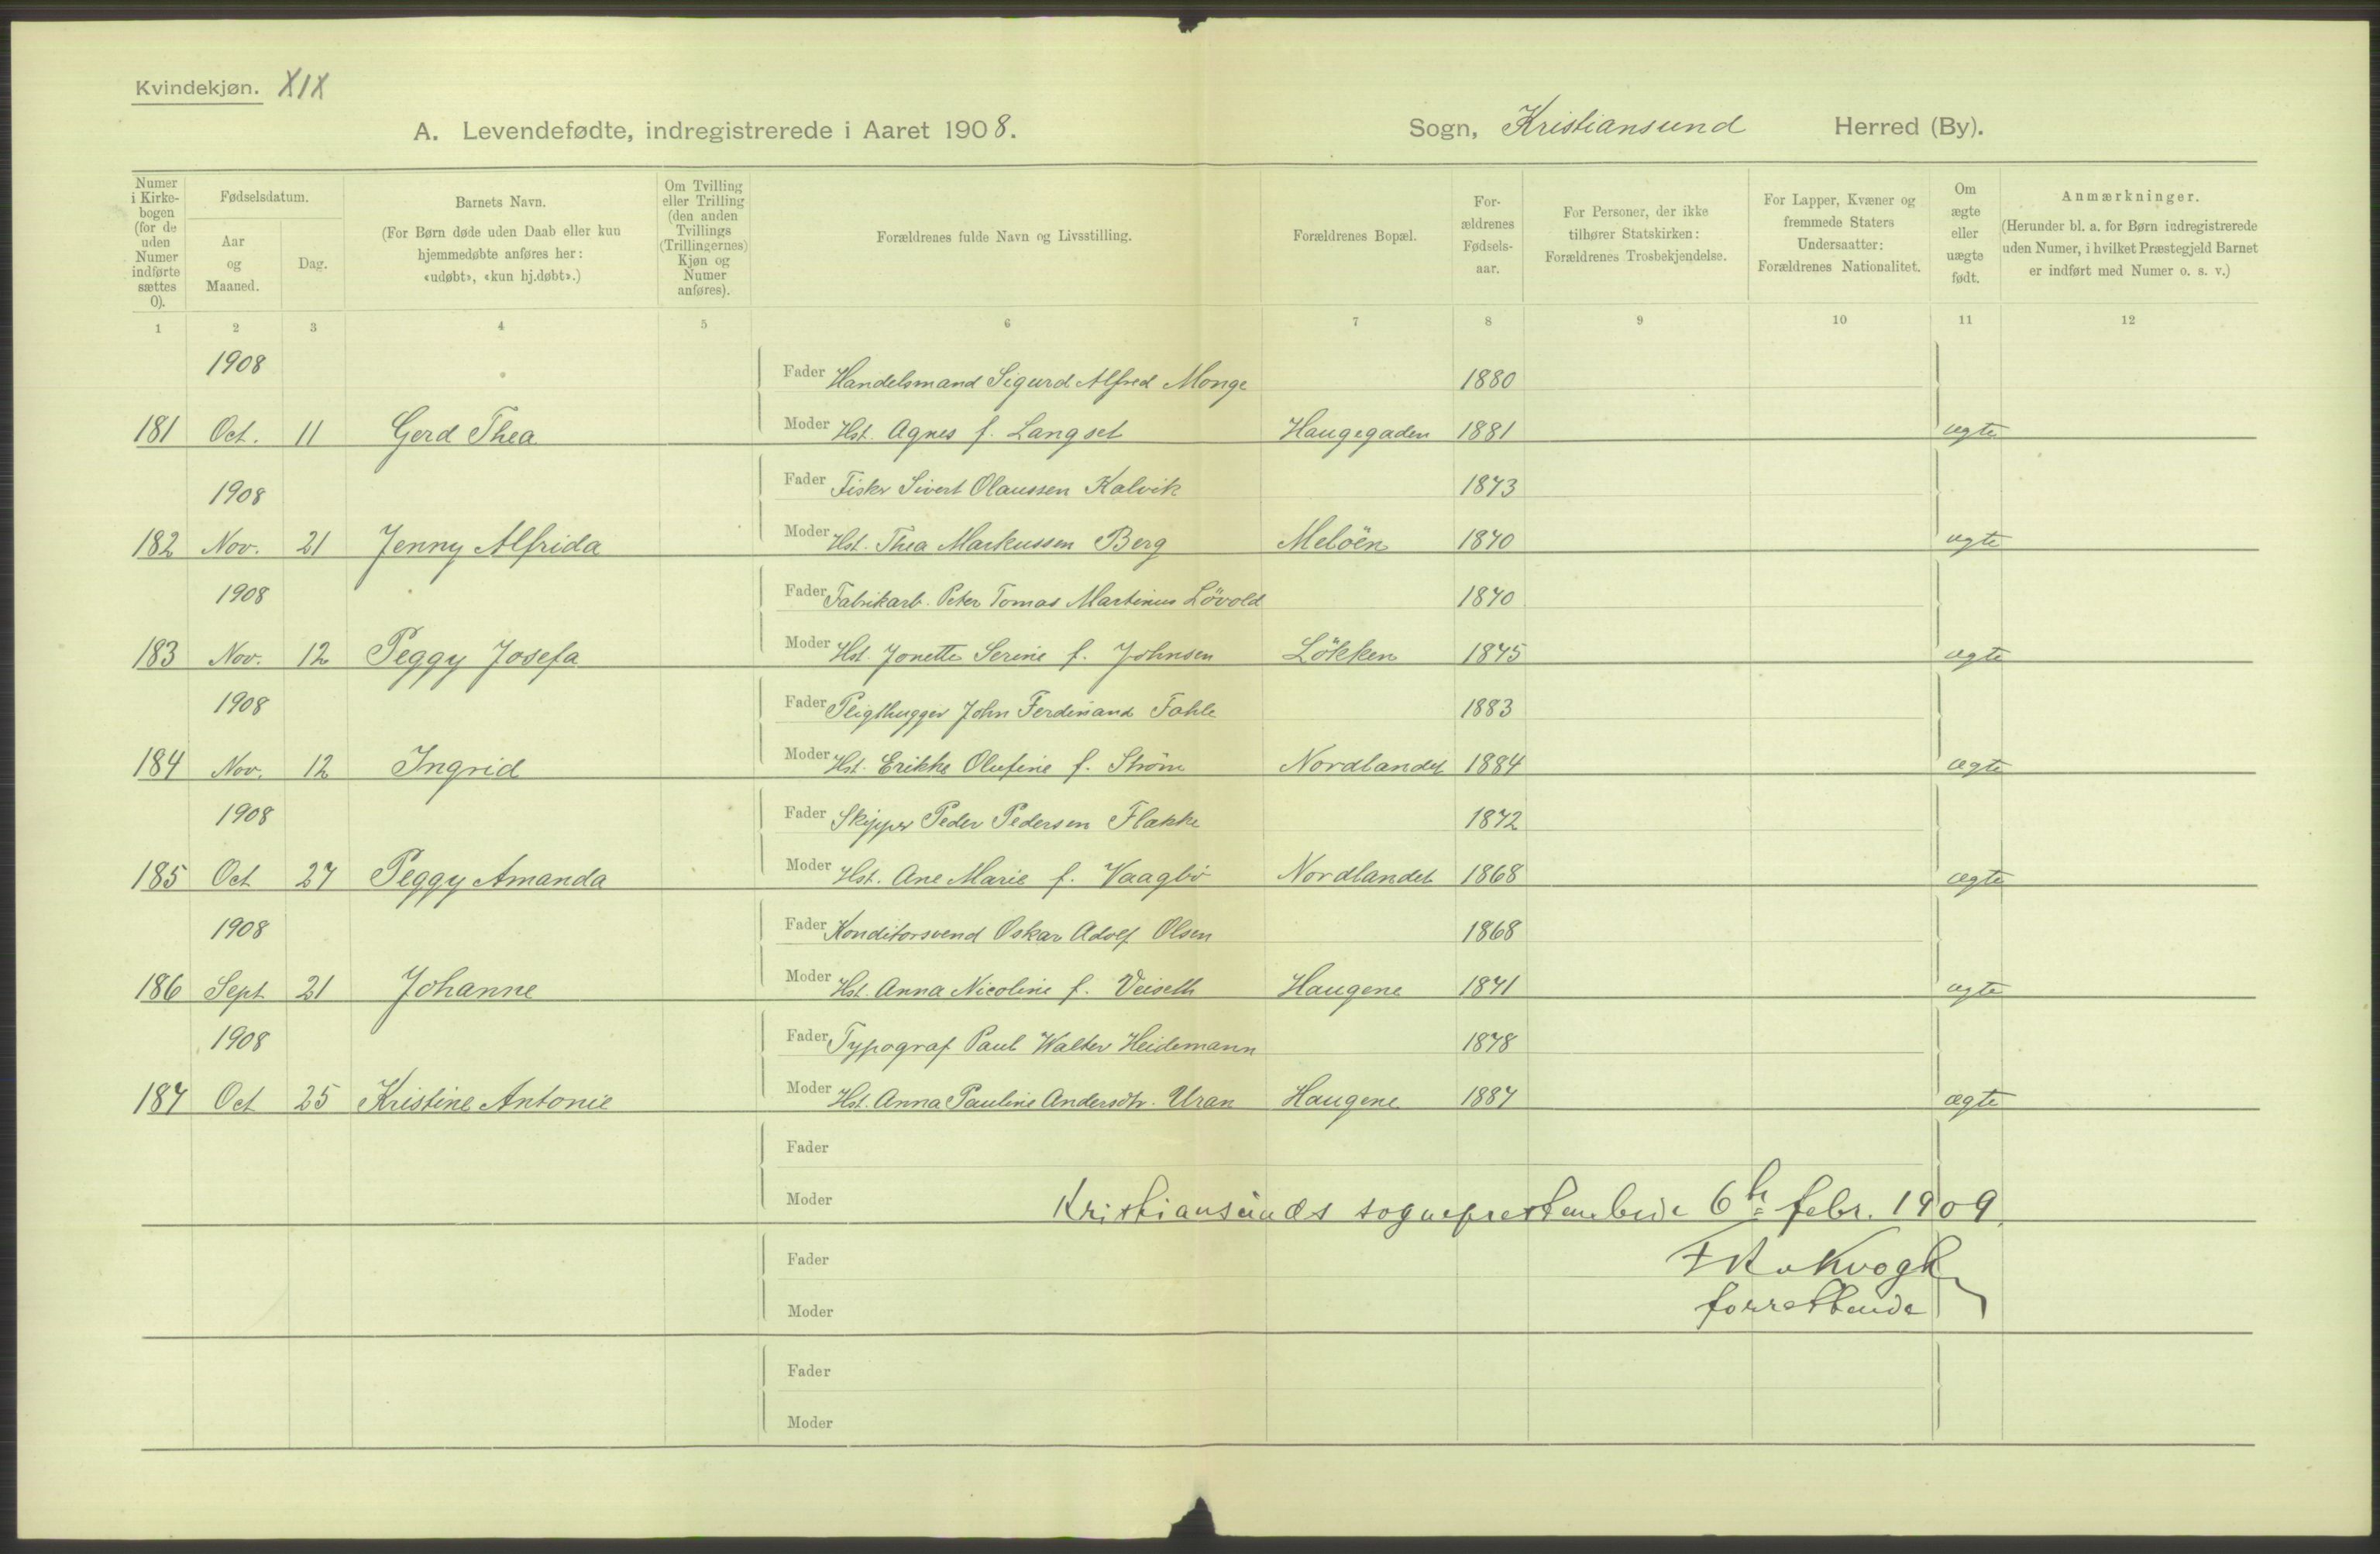 Kvindekjøn. XIX
A. Levendefødte, indregistrerede i Aaret 1908.
Sogn, Kristiansund Herred (By).
Numer i Kirkebogen (for de uden Numer indførte sættes 0).
Fødselsdatum.
Aar og Maaned.
Dag.
Barnets Navn.
(For Børn døde uden Daab eller kun
hjemmedøbte anføres her:
«udøbt», «kun hj.døbt».)
Om Tvilling
eller Trilling
(den anden
Tvillings
(Trillingernes)
Kjøn og
Numer
anføres).
Forældrenes fulde Navn og Livsstilling.
Forældrenes Bopæl.
For-
ældrenes
Fødsels-
aar.
For Personer, der ikke
tilhører Statskirken:
Forældrenes Trosbekjendelse.
For Lapper, Kvæner og
fremmede Staters
Undersaatter:
Forældrenes Nationalitet.
Om
ægte
eller
uægte
født.
Anmærkninger.
(Herunder bl. a. for Børn indregistrerede
uden Numer, i hvilket Præstegjeld Barnet
er indført med Numer o. s. v.)
1 2 3 4 5 6 7 8 9 10 11 12
1908 Fader Handelsmand Sigurd Alfred Monge 1880
181 Oct. 11 Gerd Thea Moder Hst. Agnes f. Langset Haugegaden 1881 ægte
1908 Fader Fisker Sivert Olaussen Kalvik 1873
182 Nov. 21 Jenny Alfrida Moder Hst. Thea Markussen Berg Melöen 1870 ægte
1908 Fader Fabrikarb. Peter Tomas Martinus Lövold 1870
183 Nov. 12 Peggy Josefa Moder Hst. Jonette Serine f. Johnsen Lökken 1875 ægte
1908 Fader John Ferdinand Fahle 1883
184 Nov. 12 Ingrid Moder Hst. Erikke Olufine f. Ström Nordlandet 1884 ægte
1908 Fader Skipper Peder Pedersen Flakke 1872
185 Oct 27 Peggy Amanda Moder Hst. Ane Marie f. Vaagbö Nordlandet 1868 ægte
1908 Fader Konditorsvend Oskar Adolf Olsen 1868
186 Sept 21 Johanne Moder Hst. Anna Nicoline f. Veiseth Haugene 1871 ægte
1908 Fader Typograf Paul Walter Heidemann 1878
187 Oct 25 Kristine Antonie Moder Hst. Anna Pauline Andersdtr. Uran Haugene 1887 ægte
Fader
Moder Kristiansunds sogneprestembede 6te febr. 1909.
Fader
Moder forrettende
Fader
Moder